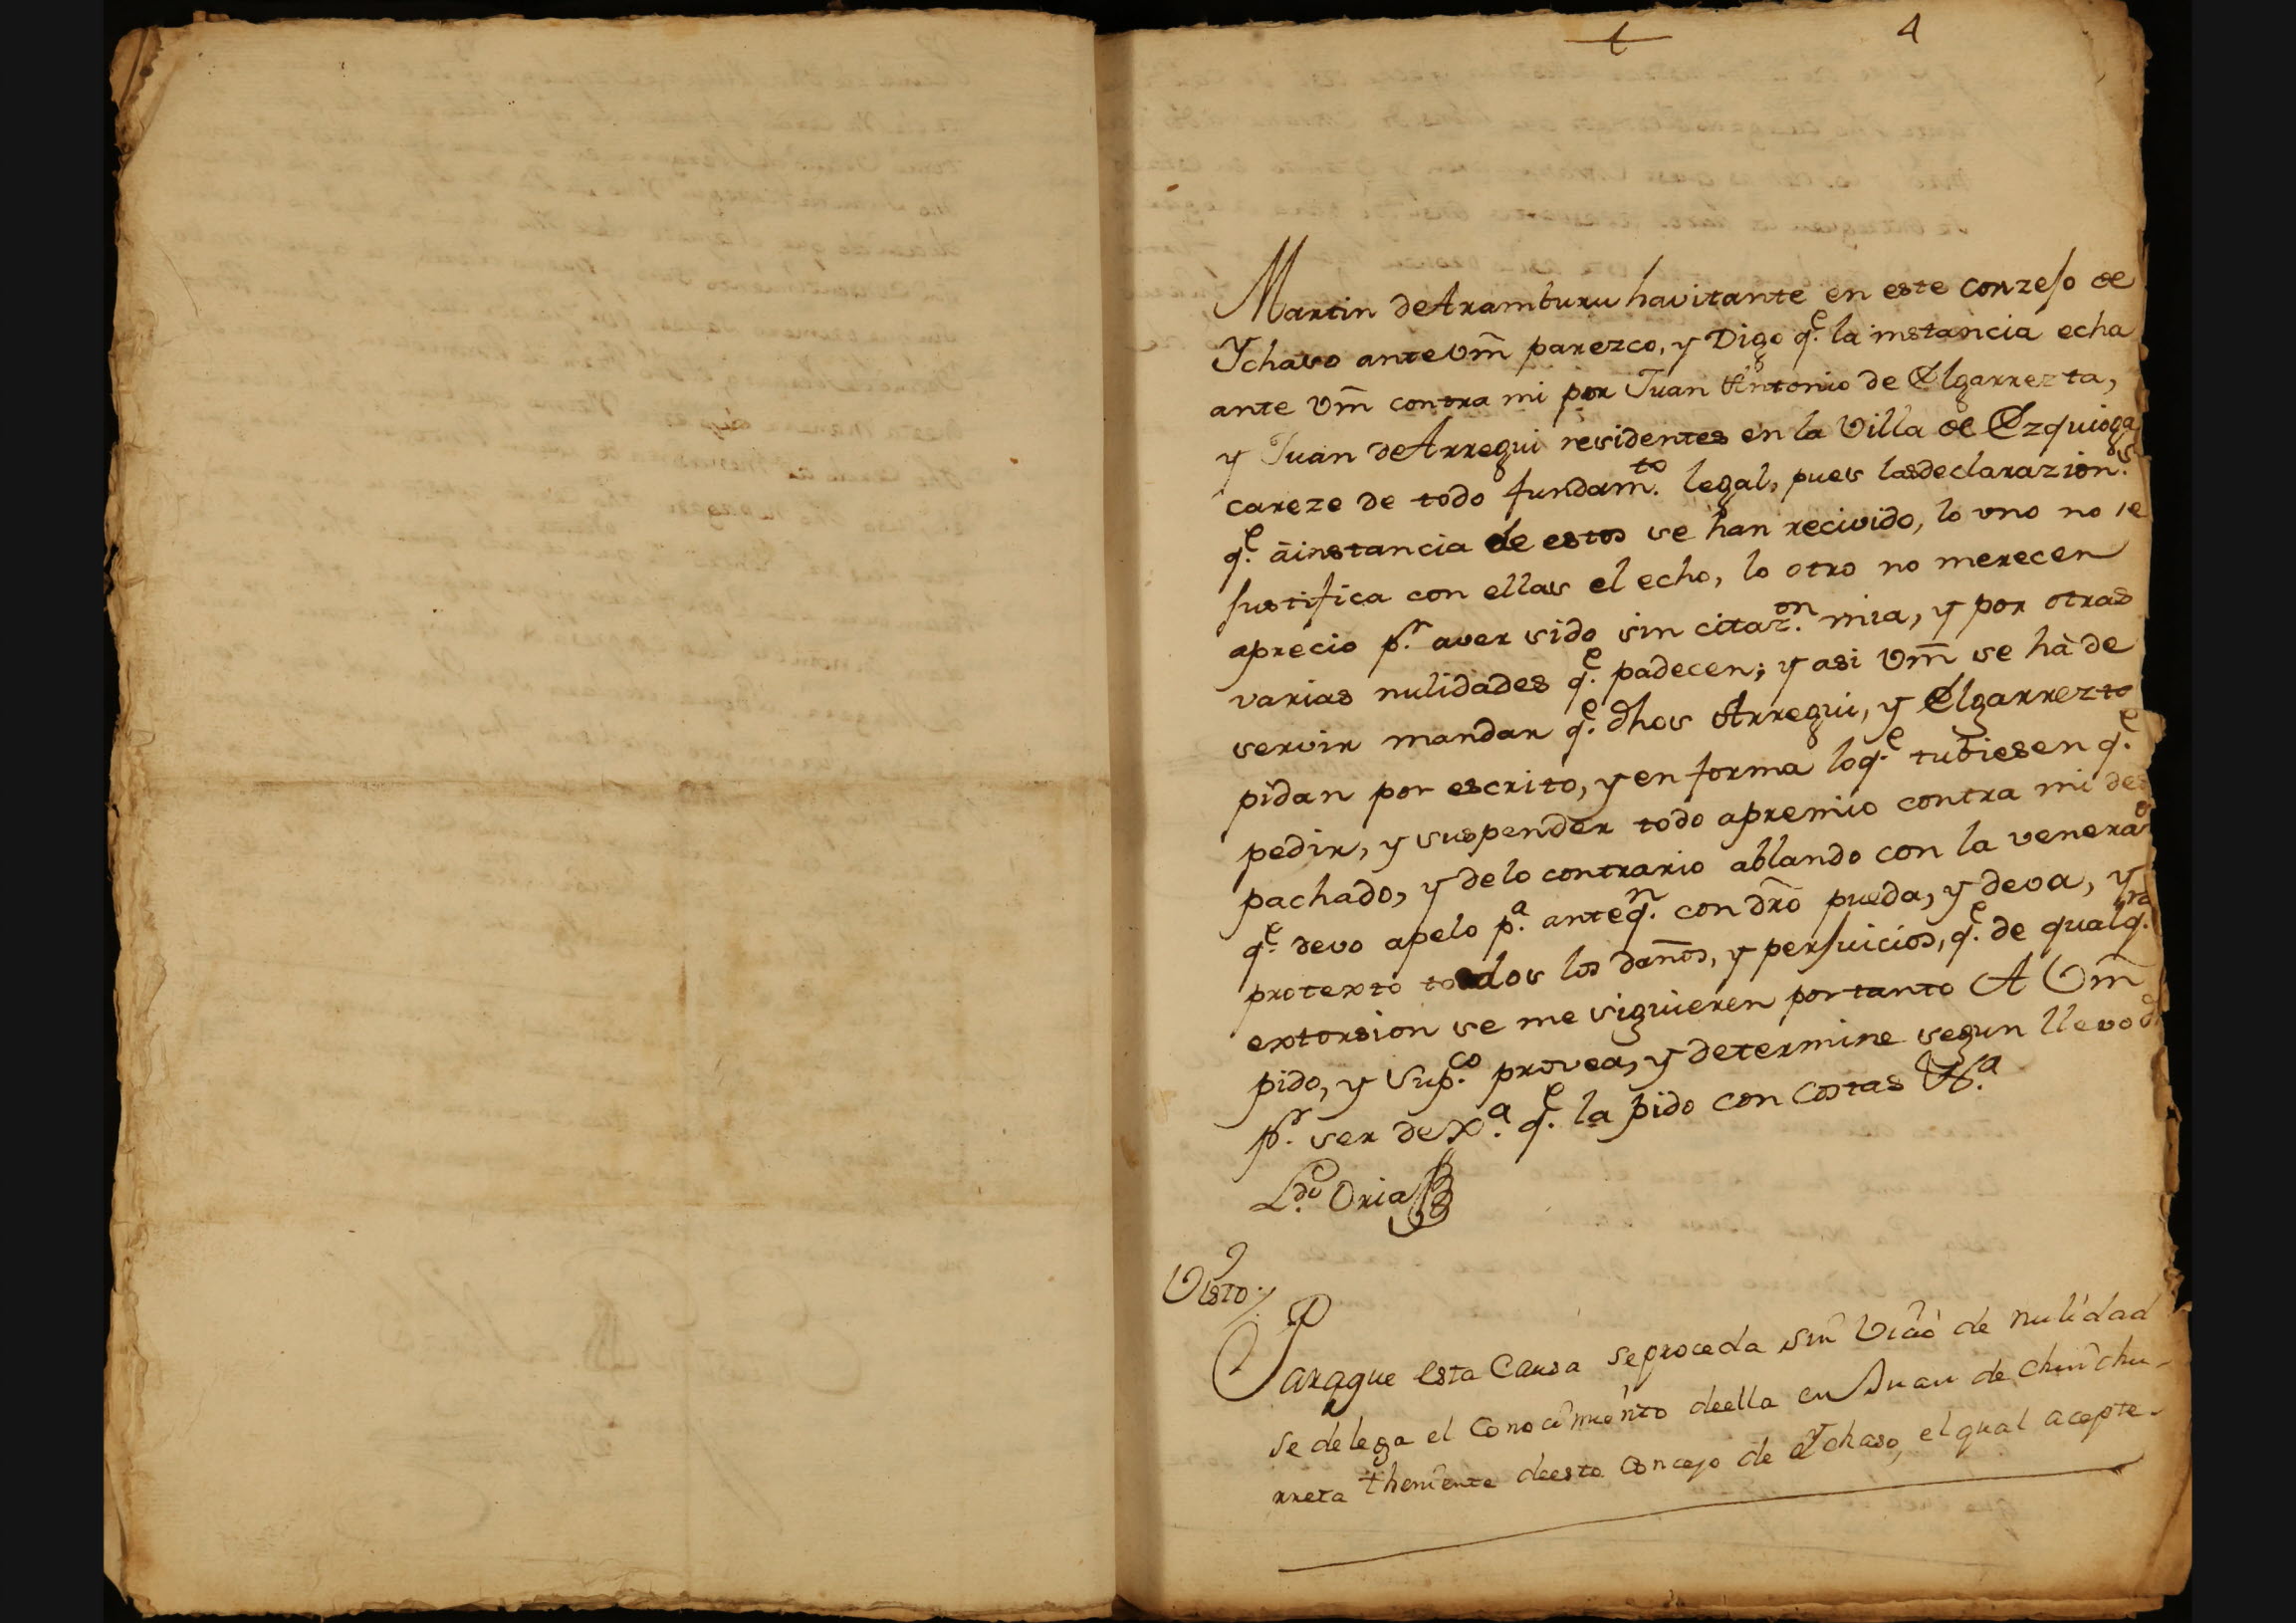 4
Martin de Aramburu havitante en este conzejo de
Ychaso ante Vm̃ parezco, y Digo q.e la instancia echa
ante Vm̃ contra mi por Juan Antonio de Elgarrezta,
y Juan de Arregui residentes en la Villa de Ezquioga
careze de todo fundam.to legal, pues las declarazion.s
q.e à instancia de estos se han recivido, lo uno no se
justifica con ellas el echo, lo otro no merecen
aprecio p.r aver sido sin citaz.on mia, y por otras
varias nulidades q.e padecen; y asi Vm̃ se hà de
servir mandar q.e dhos Arregui, y Elgarrezta
pidan por escrito, y en forma loq.e tubiesen q.e
pedir, y suspender todo apremio contra mi des
pachado, y de lo contrario ablando con la venera.on
q.e devo apelo p.a ante q.n con dr̃o pueda, y deva, y
protexto todos los daños, y perjuicios, q.e de qualq.ra
extorsion se me siguieren por tanto A Vm̃
pido, y Sup.co provea, y determine segun llevo d
p.r ser de X.a q.e la pido con costas V.a
L.do Oria
Visto:/.
Paraque esta Causa seproceda sin Vicio de nulidad
se delega el Conocimiento deella en Juan de Chinchu-
rreta theniente deeste Concejo de Ychaso, el qual acepte-